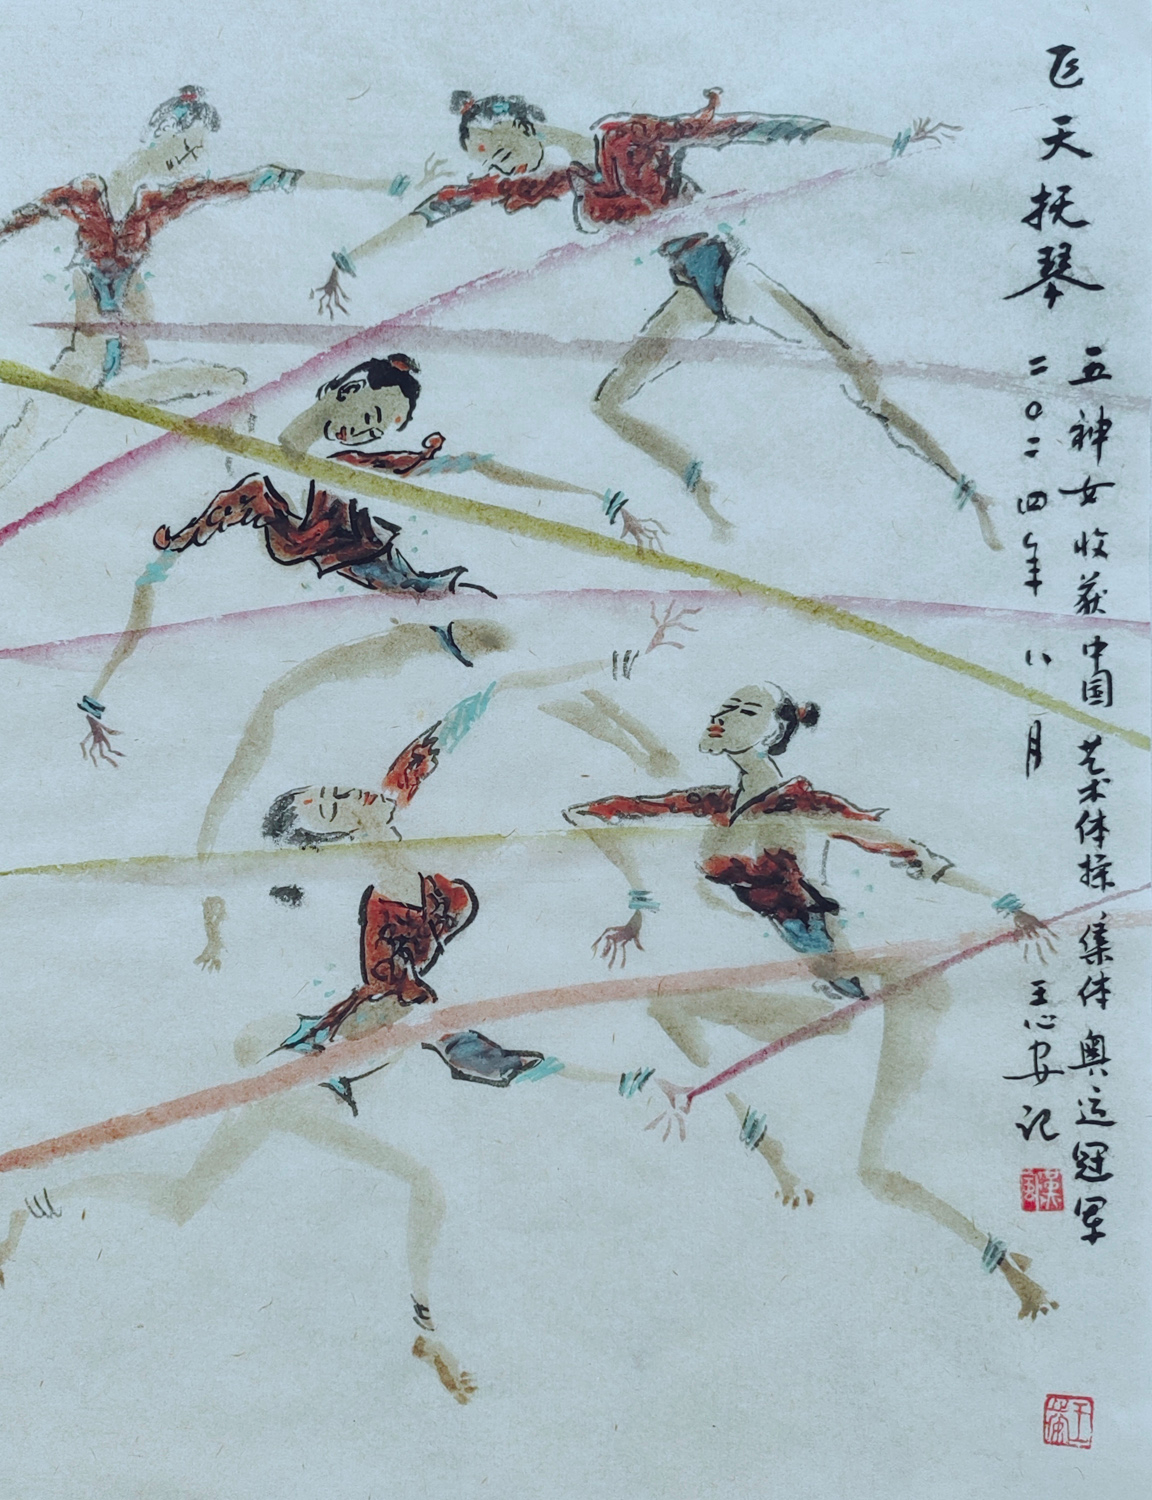 飞天抚琴
五神女收获中国艺术体操集体奥运冠军
二〇二四年八月 王心安记
漢風
王